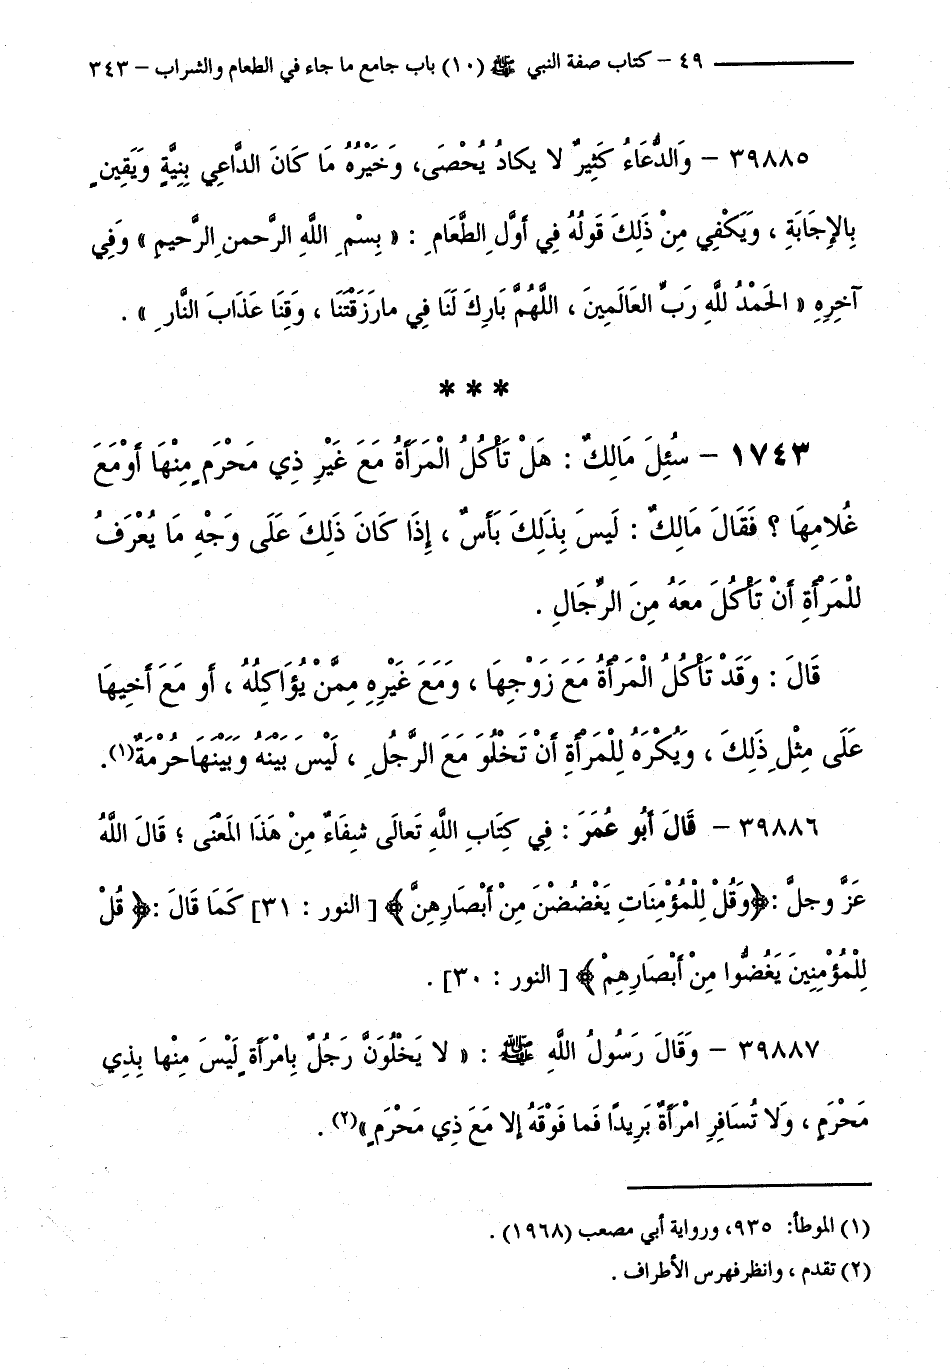 ٤٩ – كتاب صفة النبي ﷺ (١٠) باب جامع ما جاء في الطعام والشراب – ٣٤٣
٣٩٨٨٥ – وَالدُّعَاءُ كَثِيرٌ لا يكادُ يُحْصَى، وَخَيْرُهُ مَا كَانَ الدَّاعِي بِنِيَّةٍ وَيَقِينٍ
بِالإِجَابَةِ ، وَيَكْفِي مِنْ ذَلِكَ قَولُهُ فِي أَوَّلِ الطَّعَامِ : « بِسْمِ اللَّهِ الرَّحمنِ الرَّحيمِ » وَفِي
آخرِهِ « الحَمْدُ للَّهِ رَبِّ العَالَمِينَ ، اللَّهُمَّ بَارِكَ لَنَا فِي مارَزَقْتَنَا ، وَقِنَا عَذَابَ النَّارِ » .
* * *
١٧٤٣ – سُئِلَ مَالِكٌ : هَلْ تَأْكُلُ الْمَرَأَةُ مَعَ غَيْرِ ذِي مَحْرَمٍ مِنْهَا أَوْمَعَ
غُلامِهَا ؟ فَقَالَ مَالِكٌ : لَيسَ بِذَلِكَ بَأسٌ ، إِذَا كَانَ ذَلِكَ عَلَى وَجْهِ مَا يُعْرَفُ
لِلْمَرْأَةِ أَنْ تَأْكُلَ معَهُ مِنَ الرِّجَالِ .
قَالَ : وَقَدْ تَأْكُلُ الْمَرْأَةُ مَعَ زَوْجِهَا ، وَمَعَ غَيْرِهِ مِمَّنْ يُؤَاكِلُهُ ، أَو مَعَ أَخِيهَا
عَلَى مِثْلِ ذَلِكَ ، وَيُكْرَهُ لِلْمَرْأَةِ أَنْ تَخْلُوَ مَعَ الرَّجُلِ ، لَيْسَ بَيْنَهُ وَبَيْنَهَا حُرْمَةٌ(١).
٣٩٨٨٦ – قَالَ أَبُو عُمَرَ : فِي كِتَابِ اللَّهِ تَعالَى شِفَاءٌ مِنْ هَذَا المَعْنَى ؛ قَالَ اللَّهُ
عَزَّ وجلَّ : ﴿وَقُلْ لِلْمُؤْمِنَاتِ يَغْضُضْنَ مِنْ أَبْصَارِهِنَّ﴾ [ النور : ٣١] كَمَا قَالَ : ﴿ قُلْ
لِلْمُؤْمِنِينَ يَغُضُّوا مِنْ أَبْصَارِهِمْ ﴾ [ النور : ٣٠] .
٣٩٨٨٧ – وَقَالَ رَسُولُ اللَّهِ ﷺ : « لا يَخْلُوَنَّ رَجُلٌ بِامْرَأَةٍ لَيْسَ مِنْها بِذِي
مَحْرَمٍ ، وَلا تُسَافِرِ امْرَأَةٌ بَرِيدًا فَما فَوْقَهُ إلا مَعَ ذِي مَحْرَمٍ»(٢) .
(١) الموطأ: ٩٣٥، ورواية أبي مصعب (١٩٦٨) .
(٢) تقدم ، وانظر فهرس الأطراف .